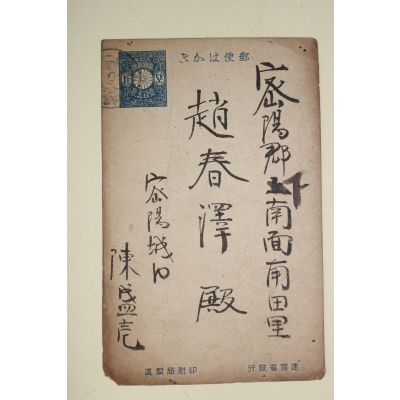 郵便はかき
密陽郡下南面南田里
趙春澤殿
密陽城内
陳
逓信省發行
印刷局製造